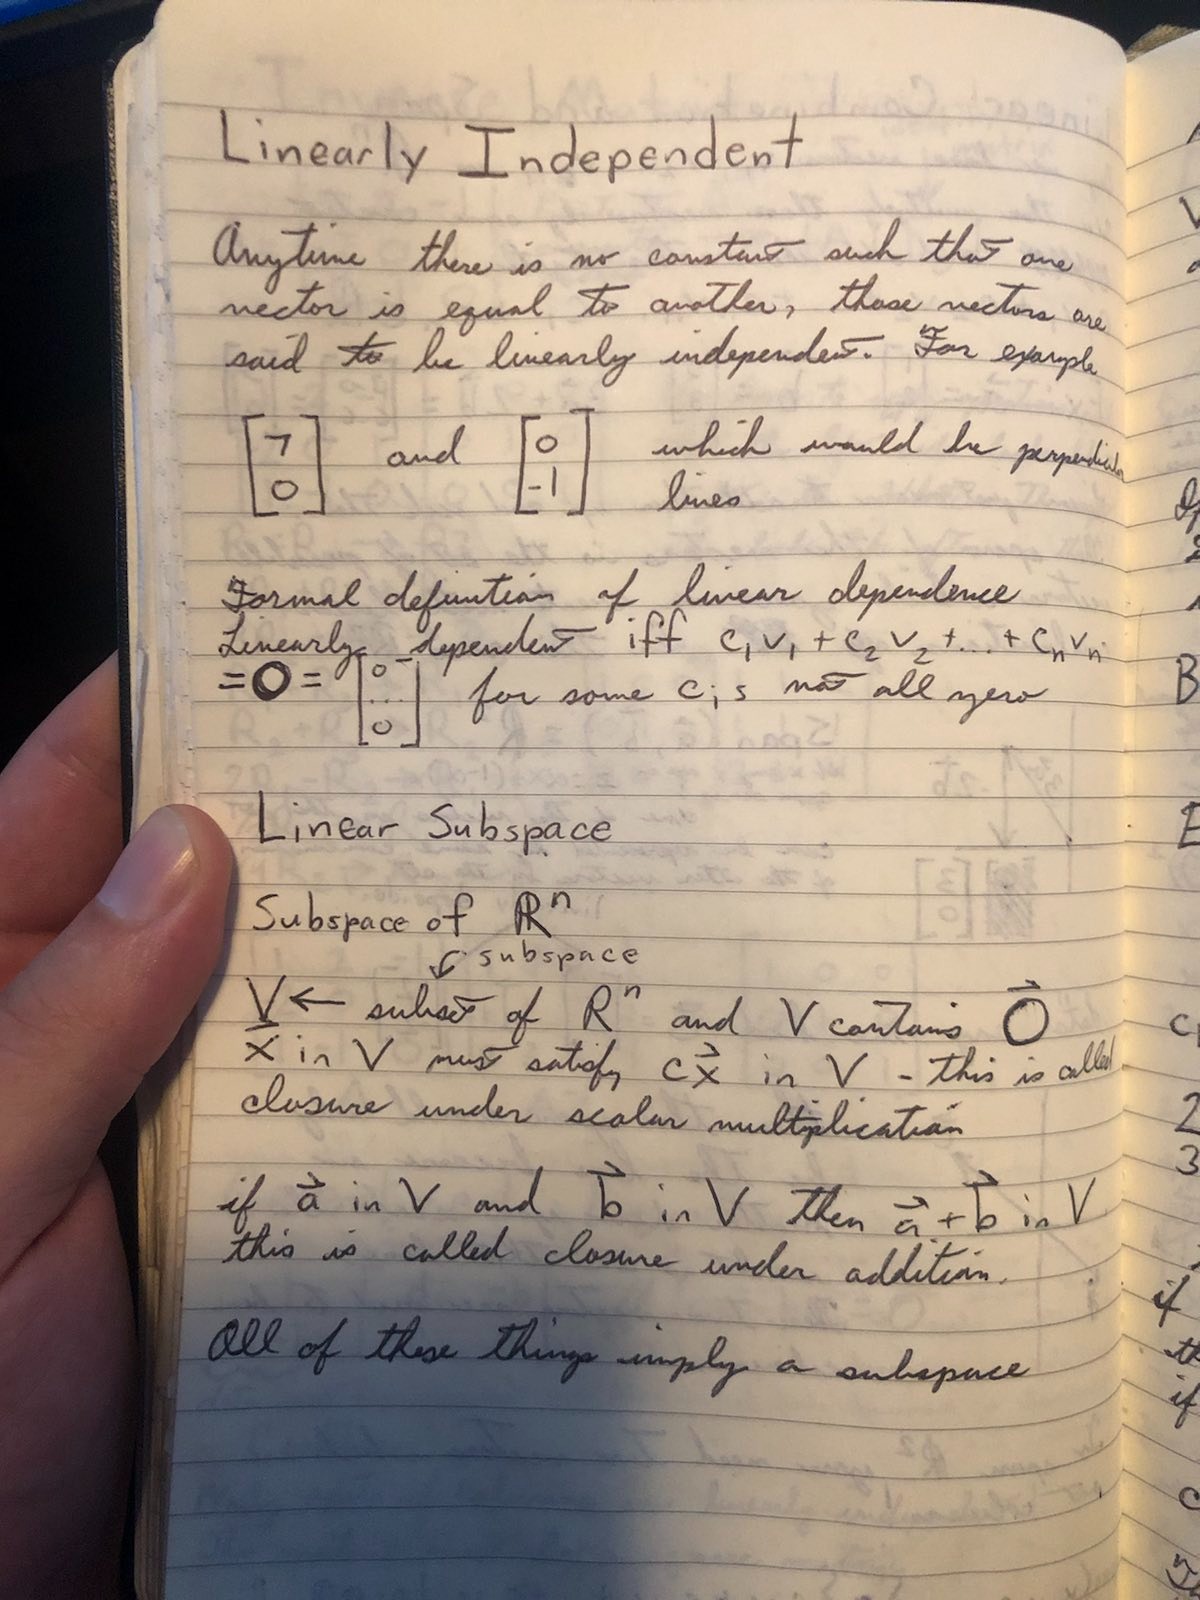 Linearly Independent
Anytime there is no constant such that one
vector is equal to another, those vectors are
said to be linearly independent. For example
[7 0] and [0 -1] which would be perpendicular
lines
Formal definition of linear dependence
Linearly dependent iff c₁v₁ + c₂v₂ + ... + cₙvₙ
= 0 = [0 ... 0] for some cᵢs not all zero
Linear Subspace
Subspace of ℝⁿ
↙ subspace
V ← subset of Rⁿ and V contains 0⃗
x⃗ in V must satisfy cx⃗ in V - this is called
closure under scalar multiplication
if a⃗ in V and b⃗ in V then a⃗ + b⃗ in V
this is called closure under addition.
All of these things imply a subspace